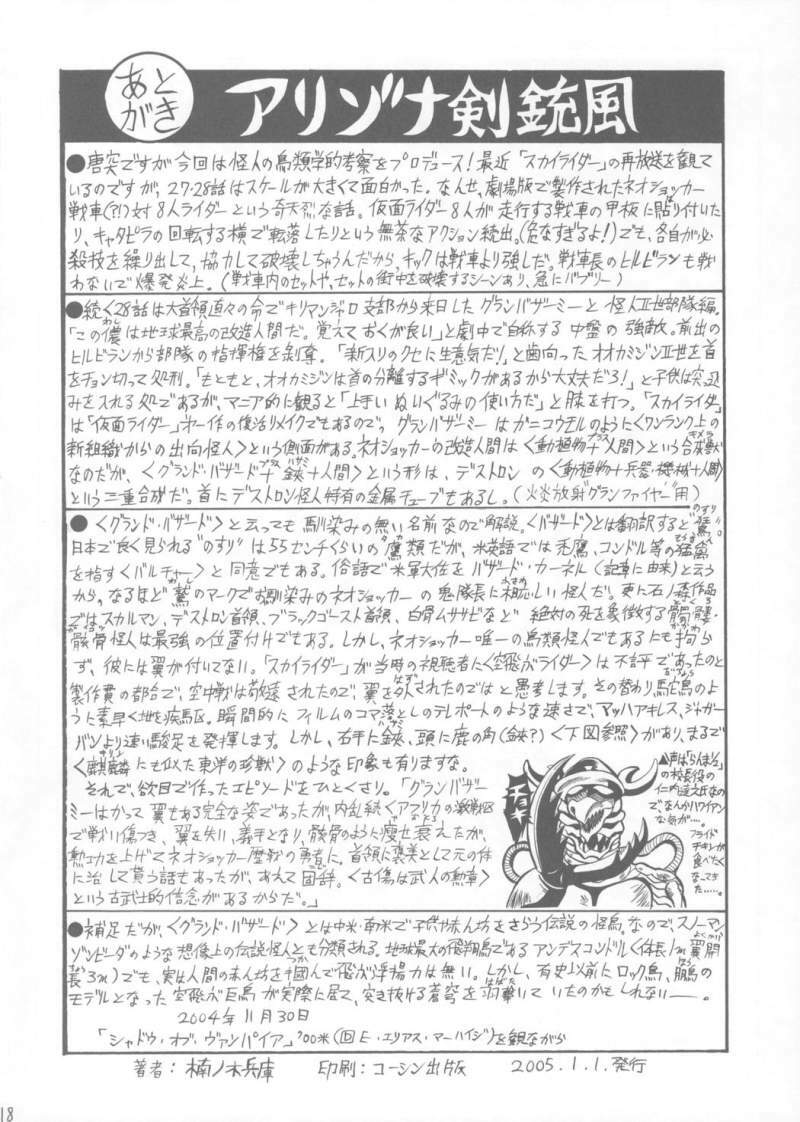 あとがき
アリゾナ剣銃風
●唐突ですが今回は怪人の鳥類学的考察をプロデュース!最近「スカイライダー」の再放送を観て
いるのですが、27・28話はスケールが大きくて面白かった。なんせ、劇場版で製作されたネオショッカー
戦車(?!)対8人ライダーという奇天烈な話。仮面ライダー8人が走行する戦車の甲板に貼り付いた
り、キャタピラの回転する横で転落したりという無茶なアクション続出。(危なすぎるよ!)でも、各自が必
殺技を繰り出して、協力して破壊しちゃうんだから、キックは戦車より強しだ。戦車長のヒルビランも戦
わないで爆発炎上。(戦車内のセットや、セットの街中を破壊するシーンあり、急にバブリー)
●続く28話は大首領直々の命でキリマンジャロ支部から来日したグランバザーミーと怪人II世部隊編。
「この儂は地球最高の改造人間だ。覚えておくが良い」と劇中で自称する中盤の強敵。前出の
ヒルビランから部隊の指揮権を剥奪。「新入りのクセに生意気だ!」と歯向ったオオカミジンII世を首
をチョン切って処刑。「もともと、オオカミジンは首の分離するギミックがあるから大丈夫だろ!」と子供は突込
みを入れる処であるが、マニア的に観ると「上手いぬいぐるみの使い方だ」と膝を打つ。「スカイライダー」
は「仮面ライダー」オー作の復活リメイクでもあるので、グランバザーミーはガニコウモルのように〈ワンランク上の
新組織からの出向怪人〉という側面がある。ネオショッカーの改造人間は〈動植物+人間〉という合成獣
なのだが、〈グランド・バザード+鋏+人間〉という形は、デストロンの〈動植物+兵器・機械+人間〉
という三重合成だ。首にデストロン怪人特有の金属チューブもあるし。(火炎放射"グランファイヤー"用)
●〈グランド・バザード〉と云っても馴染みの無い名前なので解説。〈バザード〉とは翻訳すると"鵟"。
日本で良く見られる"のすり"は55センチくらいの鷹類だが、米英語では禿鷹、コンドル等の猛禽
を指す〈バルチャー〉と同意でもある。俗語で米軍大佐をバザード・カーネル(記章に由来)と云う
から。なるほど鷲のマークでお馴染みのネオショッカーの鬼隊長に相応しい怪人だ。更に石ノ森作品
ではスカルマン、デストロン首領、ブラックゴースト首領、白骨ムササビなど絶対の死を象徴する髑髏・
骸骨怪人は最強の位置付けでもある。しかし、ネオショッカー唯一の鳥類怪人でもあるにも拘ら
ず、彼には翼が付いてない。「スカイライダー」が当時の視聴者に〈空飛ぶライダー〉は不評であったのと
製作費の都合で、空中戦は敬遠されたので、翼を外されたのではと愚考します。その替わり駝鳥のよ
うに素早く地を疾駆。瞬間的にフィルムのコマ落としのテレポートのような速さで、マッハアキレス、ジャガー
バンより速い駿足を発揮します。しかし、右手に鋏、頭に鹿の角(鋏?)〈下図参照〉があり、まるで
〈麒麟にも似た東洋の珍獣〉のような印象も有りますな。
それで、欲目で作ったエピソードをひとくさり。「グランバザー
ミーはかつて翼もある完全な姿であったが、内乱続くアフリカの激戦区
で戦い傷つき、翼を失い、義手となり、骸骨のように痩せ衰えたが、
勲功を上げてネオショッカー歴戦の勇者に。首領に褒美として元の体
に治して貰う話もあったが、あえて固辞。〈古傷は武人の勲章〉
という古武士的信念があるからだ。」
チョキ
▲声は「らんま½」
の校長役の
仁内達之氏なの
で、なんかハワイアン
な気が…。
フライド
チキンが
食べたく
なってき
た……。
●補足だが、〈グランド・バザード〉とは中米・南米で子供や赤ん坊をさらう伝説の怪鳥。なので、スノーマン、
ゾンビーダのような想像上の伝説怪人とも分類される。地球最大の飛翔鳥であるアンデスコンドル〈体長1m翼開
長3m〉でも、実は人間の赤ん坊を掴んで飛ぶ浮揚力は無い。しかし、有史以前にロック鳥、鵬の
モデルとなった空飛ぶ巨鳥が実際に居て、突き抜ける蒼穹を羽撃いていたのかもしれない――。
2004年11月30日
「シャドウ・オブ・ヴァンパイア」'00米(監E・エリアス・マーハイジ)を観ながら
著者:楠ノ木兵庫 印刷:コーシン出版 2005.1.1.発行
18